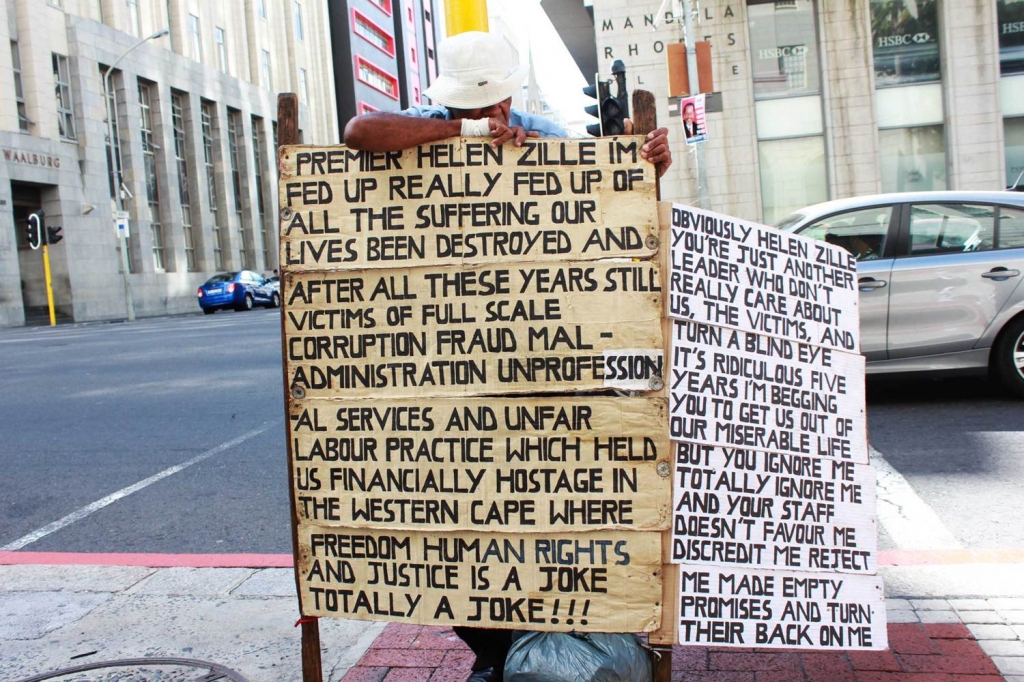 WAALBURG
MANDELA
RHODES
HSBC
HSBC
PREMIER HELEN ZILLE IM
FED UP REALLY FED UP OF
ALL THE SUFFERING OUR
LIVES BEEN DESTROYED AND
AFTER ALL THESE YEARS STILL
VICTIMS OF FULL SCALE
CORRUPTION FRAUD MAL-
ADMINISTRATION UNPROFESSION
-AL SERVICES AND UNFAIR
LABOUR PRACTICE WHICH HELD
US FINANCIALLY HOSTAGE IN
THE WESTERN CAPE WHERE
FREEDOM HUMAN RIGHTS
AND JUSTICE IS A JOKE
TOTALLY A JOKE!!!
OBVIOUSLY HELEN ZILLE
YOU'RE JUST ANOTHER
LEADER WHO DON'T
REALLY CARE ABOUT
US, THE VICTIMS, AND
TURN A BLIND EYE
IT'S RIDICULOUS FIVE
YEARS I'M BEGGING
YOU TO GET US OUT OF
OUR MISERABLE LIFE
BUT YOU IGNORE ME
TOTALLY IGNORE ME
AND YOUR STAFF
DOESN'T FAVOUR ME
DISCREDIT ME REJECT
ME MADE EMPTY
PROMISES AND TURN
THEIR BACK ON ME